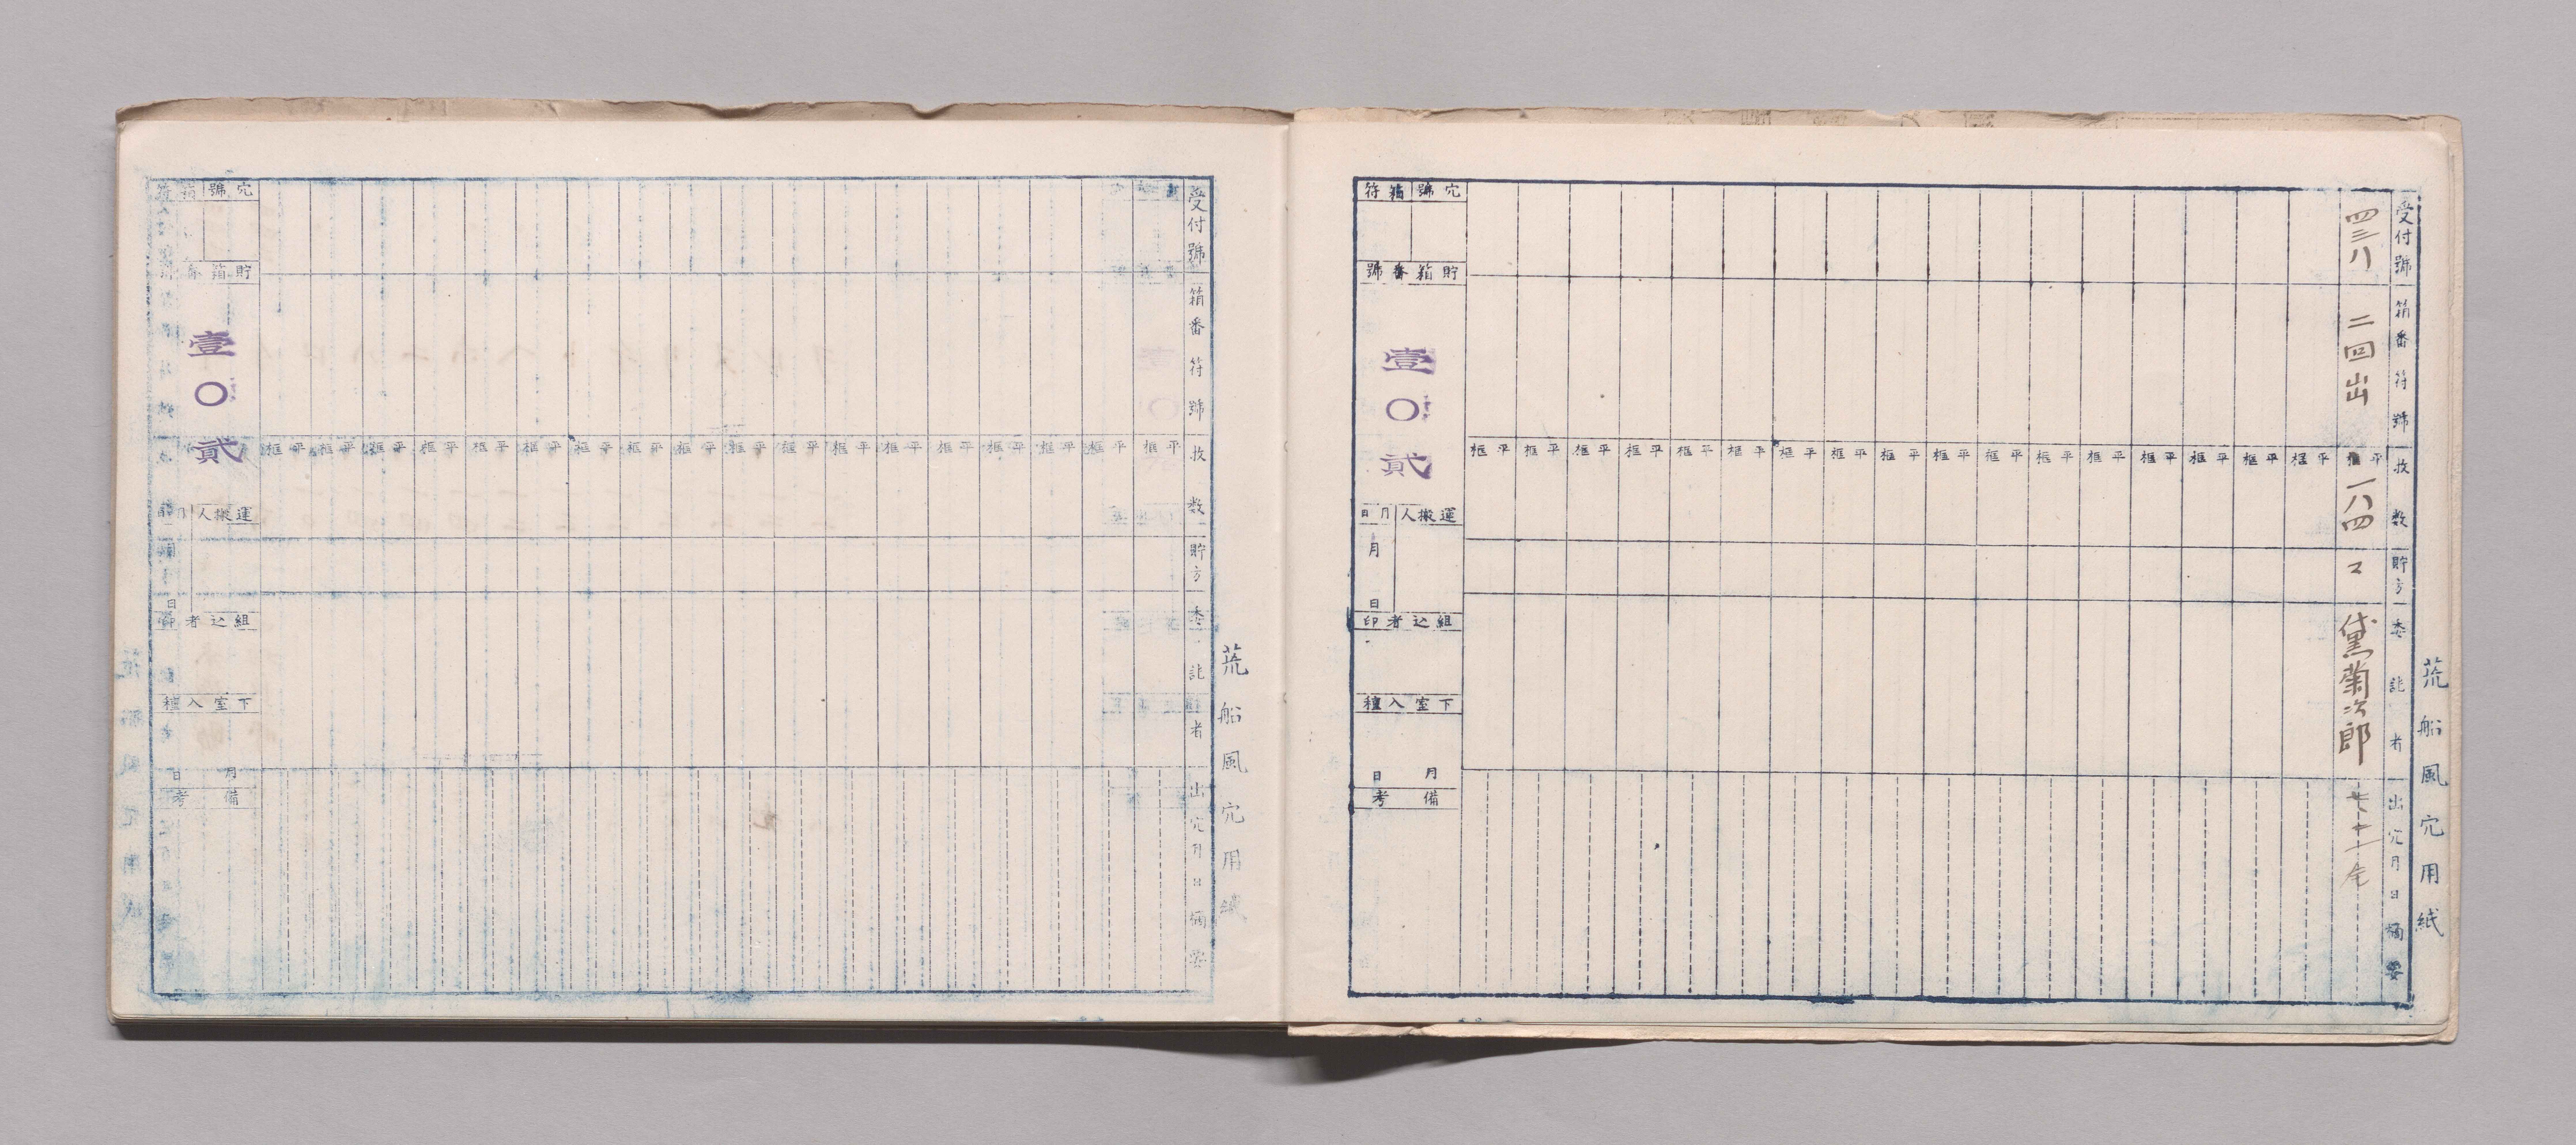 荒船風穴用紙
受付號 箱番符號 枚数 貯方 委託者 出穴月日 摘要
四三八 二回出 平框 一八四 黛菊次郎
平框 平框 平框 平框 平框 平框 平框 平框 平框 平框 平框 平框 平框 平框 平框 平框 平框
穴號 箱符
貯箱番號
壹〇貳
運搬人 月日
月 日
組込者印
下室入種
月 日
備考
荒船風穴用紙
受付號 箱番符號 枚数 貯方 委託者 出穴月日 摘要
平框 平框 平框 平框 平框 平框 平框 平框 平框 平框 平框 平框 平框 平框 平框 平框 平框 平框
穴號 箱符
貯箱番號
壹〇貳
運搬人 月日
月 日
組込者印
下室入種
月 日
備考